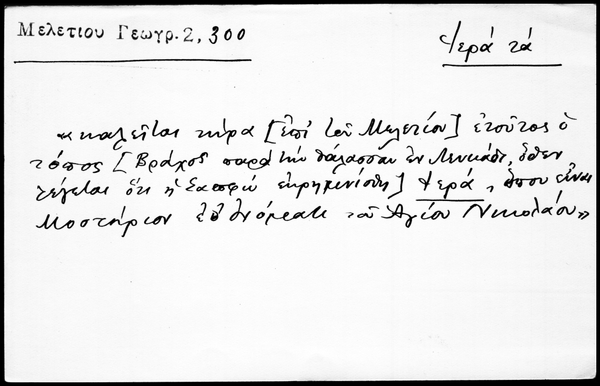 Μελετιου Γεωγρ. 2, 300
Ψερά τά
«καλεῖται τώρα [ἐπί τοῦ Μελετίου] ἐτοῦτος ὁ
τόπος [Βράχος παρά τήν θάλασσαν ἐν Λευκάδι, ὅθεν
λέγεται ὅτι ἡ Σαπφώ ἐκρημνίσθη] Ψερά, ὅπου εἶναι
Μοστήριον ἐπ' ὀνόματι τοῦ Ἁγίου Νικολάου»